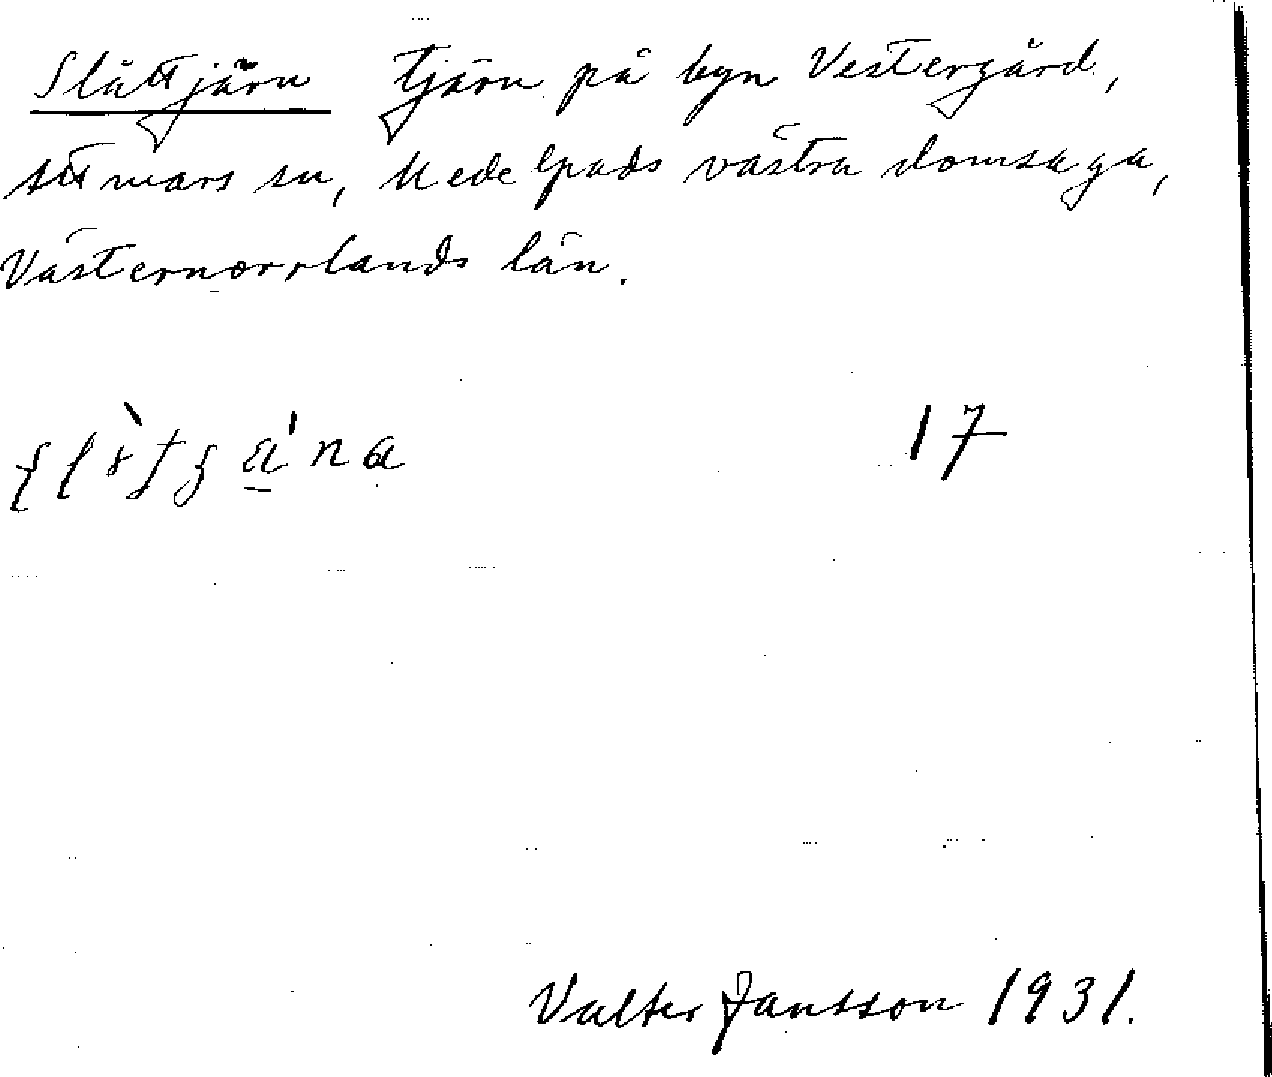 Slåttjärn tjärn på byn Vestergård,
Attmars sn, Medelpads västra domsaga,
Västernorrlands län.
17
Valter Jansson 1931.